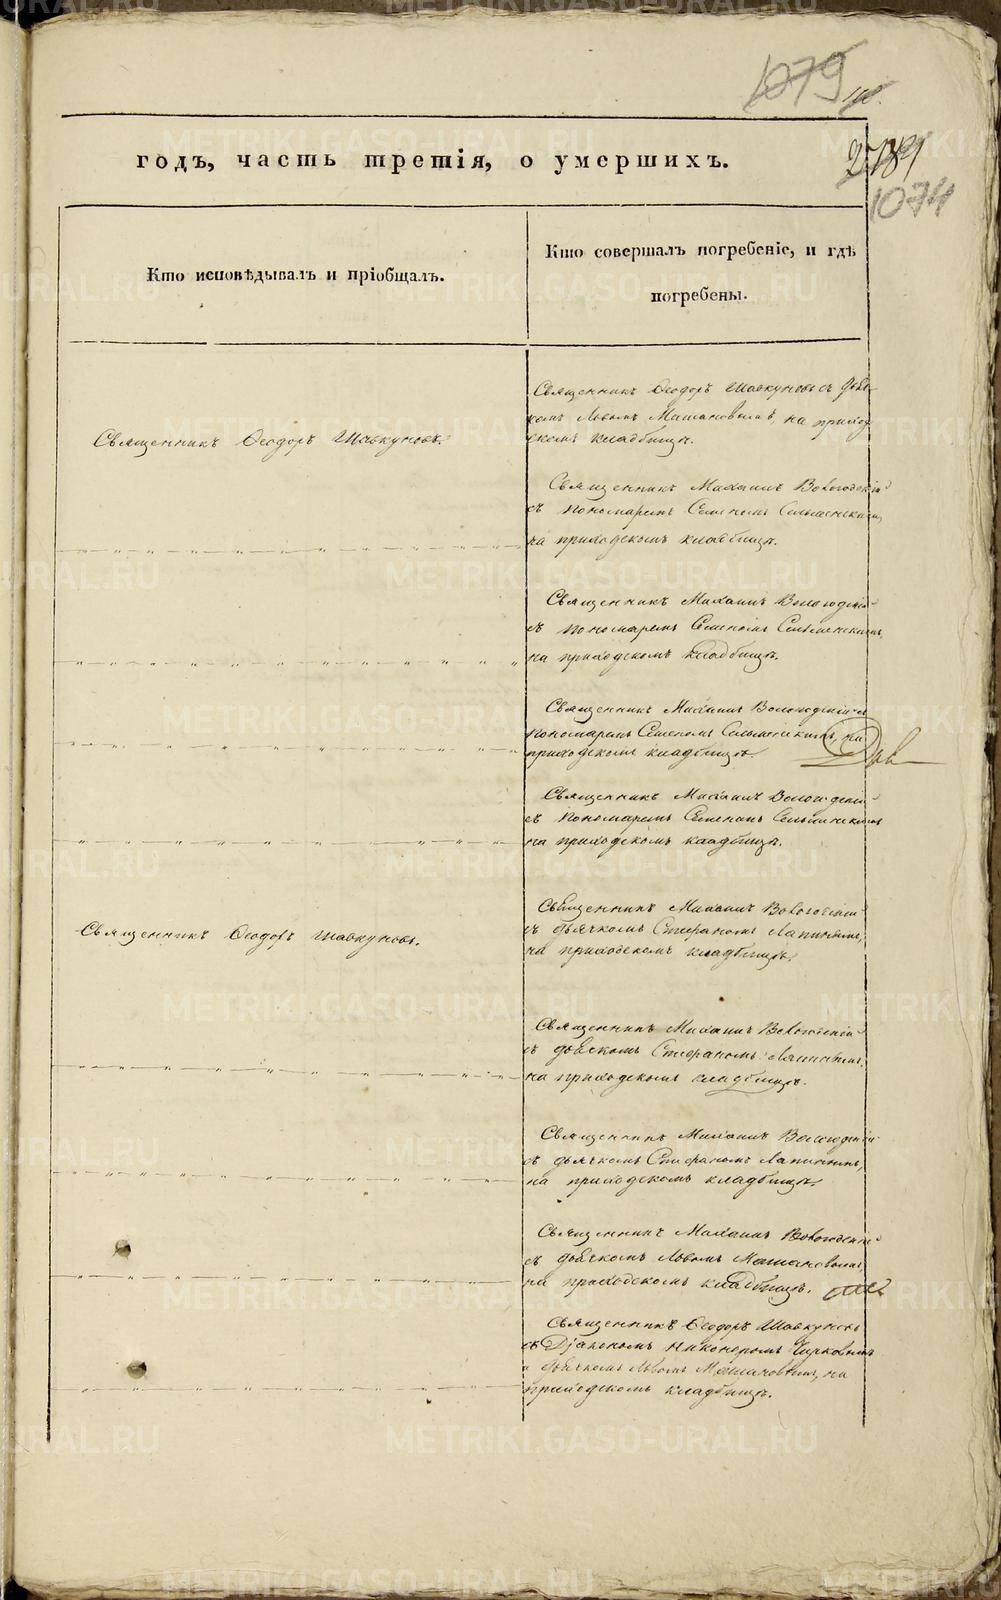 1079
1074
годъ, часть третія, о умершихъ.
Кто исповѣдывалъ и пріобщалъ.
Кто совершалъ погребеніе, и гдѣ
погребены.
Священникъ Ѳеодоръ Шавкуновъ.
Священникъ Ѳеодоръ Шавкуновъ съ дьяч-
комъ Львомъ Машановымъ, на приход
скомъ кладбищѣ.
Священникъ Михаилъ Вологодскій
съ пономаремъ Семеномъ Сельменскимъ,
на приходскомъ кладбищѣ.
Священникъ Михаилъ Вологодскій
съ пономаремъ Семеномъ Сельменскимъ,
на приходскомъ кладбищѣ.
Священникъ Михаилъ Вологодскій съ
пономаремъ Семеномъ Сельменскимъ, на
приходскомъ кладбищѣ.
Священникъ Михаилъ Вологодскій
съ пономаремъ Семеномъ Сельменскимъ
на приходскомъ кладбищѣ.
Священникъ Ѳеодоръ Шавкуновъ.
Священникъ Михаилъ Вологодскій
съ дьячкомъ Стефаномъ Лапинымъ,
на приходскомъ кладбищѣ.
Священникъ Михаилъ Вологодскій
съ дьячкомъ Стефаномъ Лапинымъ,
на приходскомъ кладбищѣ.
Священникъ Михаилъ Вологодскій
съ дьячкомъ Стефаномъ Лапинымъ,
на приходскомъ кладбищѣ.
Священникъ Михаилъ Вологодскій
съ дьячкомъ Львомъ Машановымъ
на приходскомъ кладбищѣ.
Священникъ Ѳеодоръ Шавкуновъ
съ Діакономъ Никоноромъ Чирковымъ
и дьячкомъ Львомъ Машановымъ, на
приходскомъ кладбищѣ.
METRIKI.GASO-URAL.RU